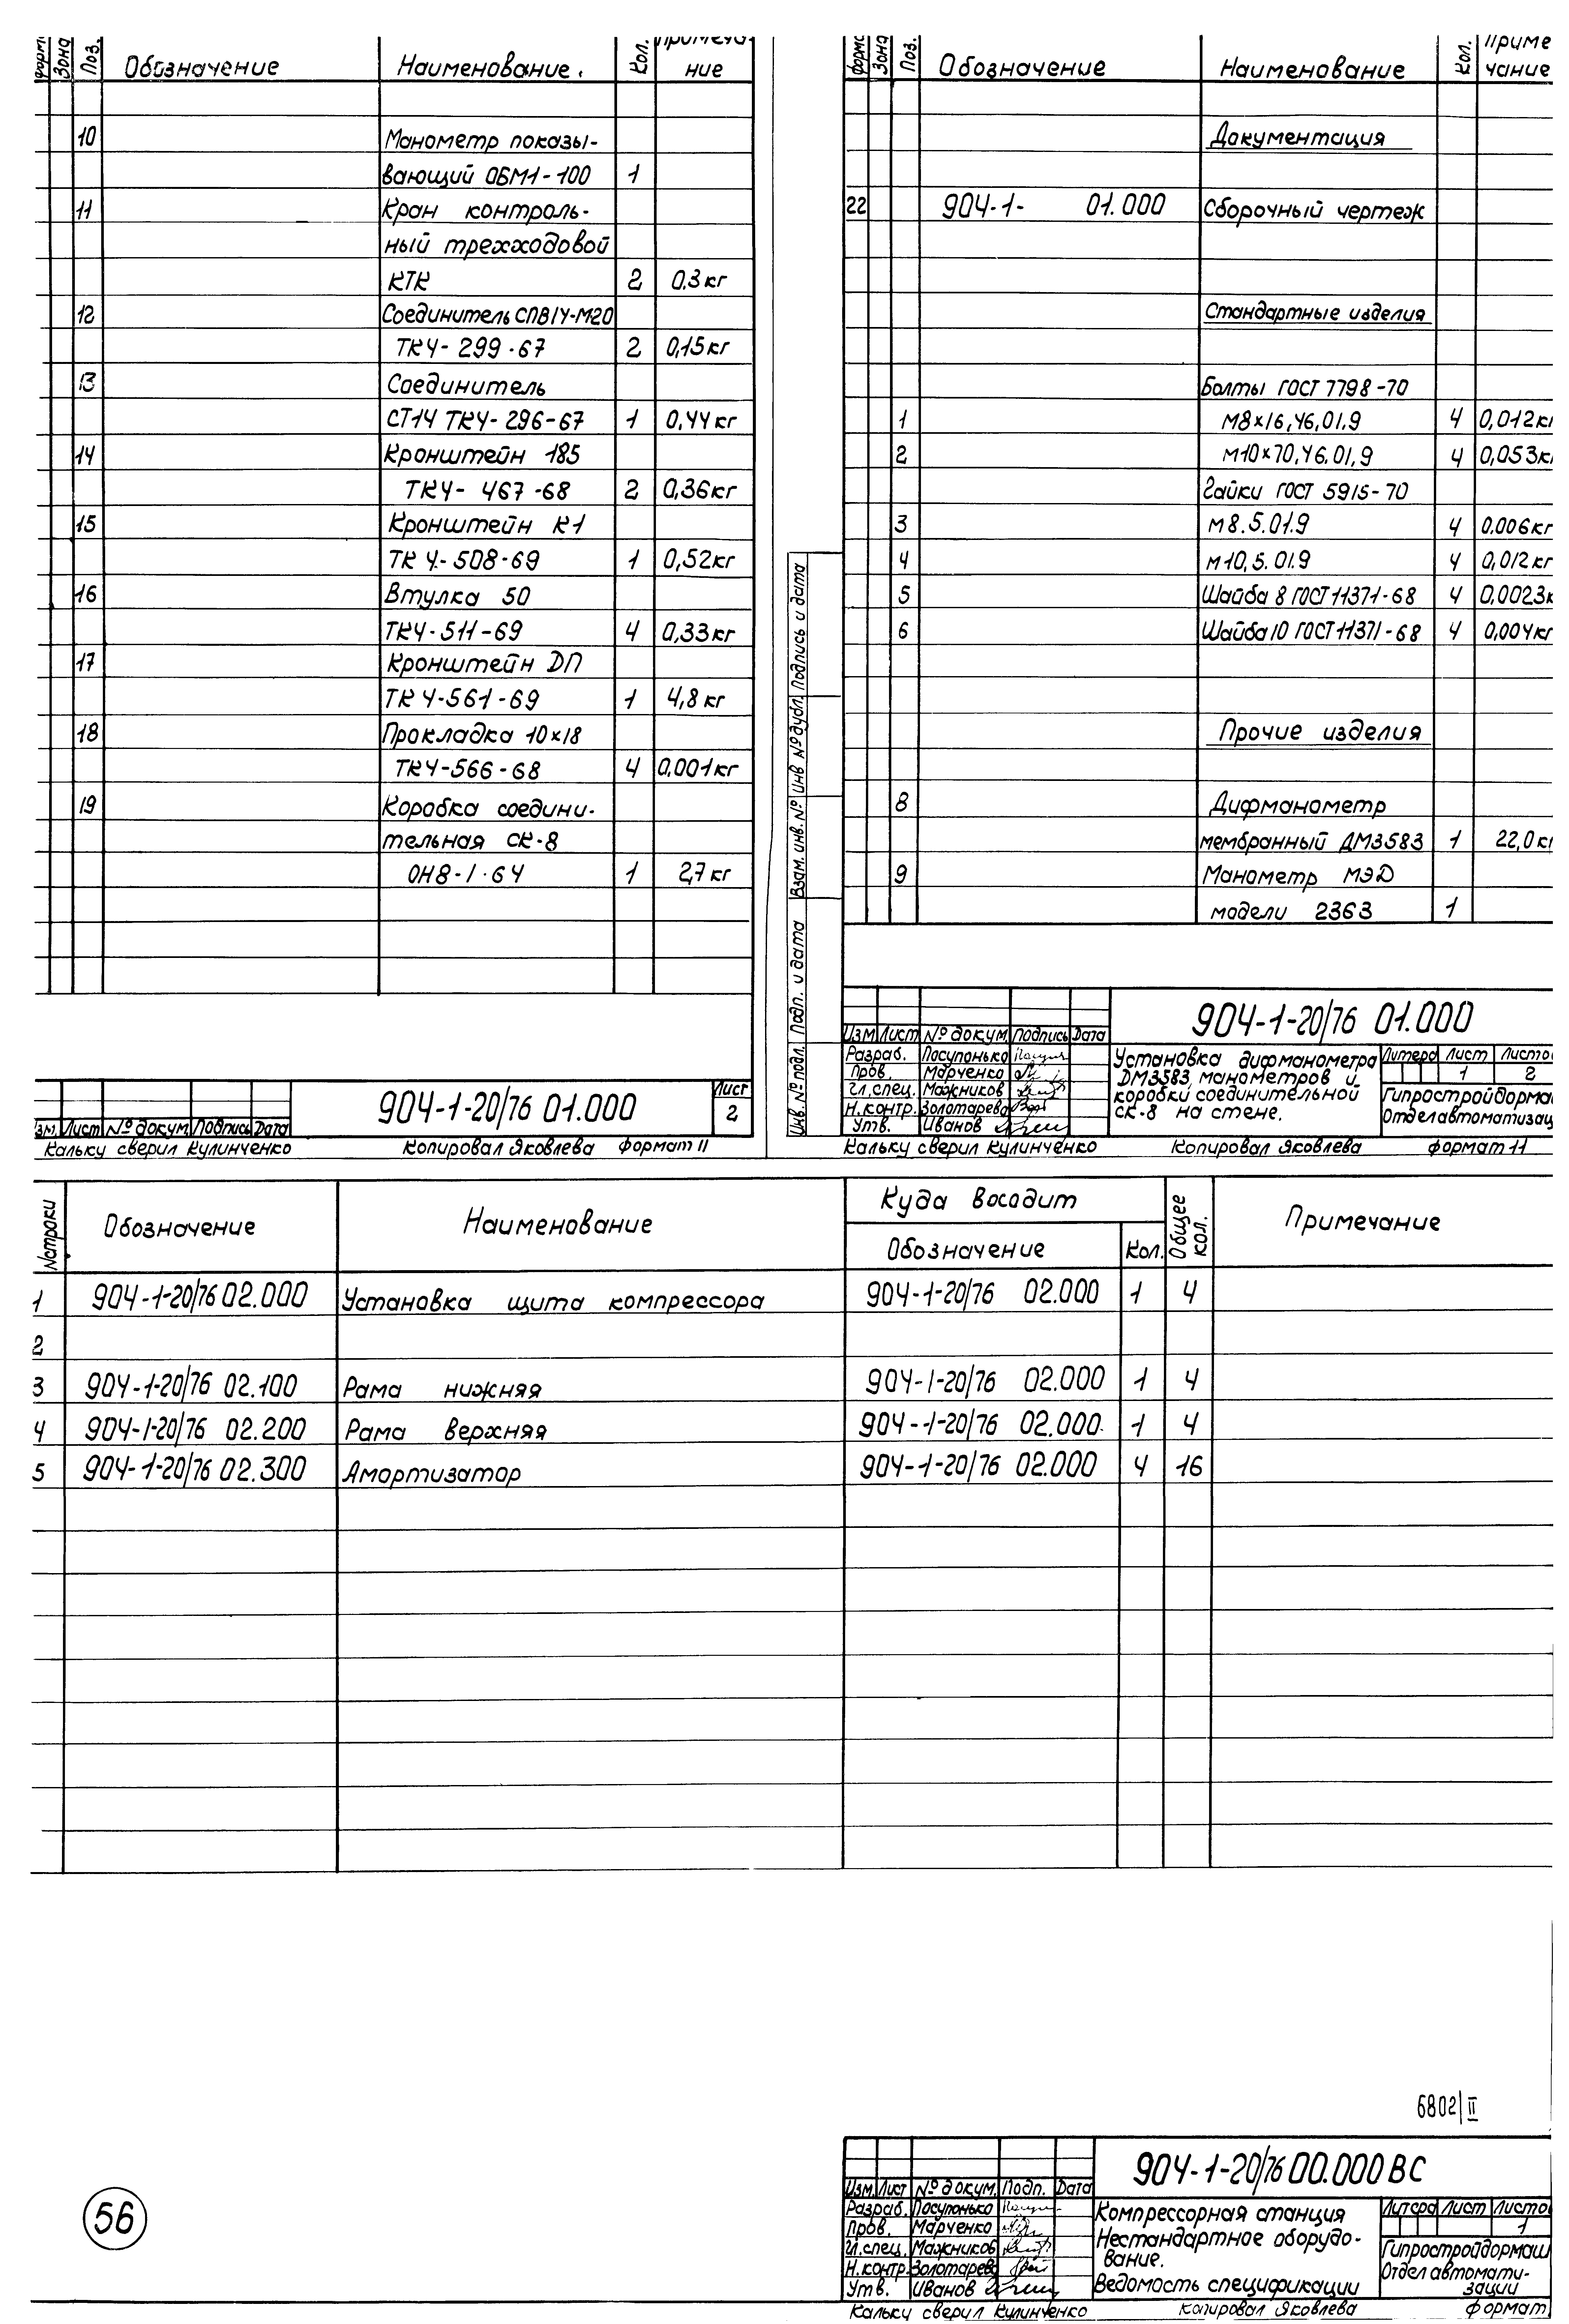 Зона Поз. Обозначение Наименование. Кол. Примеча-
ние
10 Манометр показы-
вающий ОБМ1-100 1
11 Кран контроль-
ный трехходовой
КТК 2 0.3 кг
12 Соединитель СПВ14-М20
ТК4-299-67 2 0,15 кг
13 Соединитель
СТ14 ТК4-296-67 1 0,44 кг
14 Кронштейн 185
ТК4- 467-68 2 0,36 кг
15 Кронштейн К1
ТК 4-508-69 1 0,52 кг
16 Втулка 50
ТК4-511-69 4 0,33 кг
17 Кронштейн ДП
ТК 4-561-69 1 4,8 кг
18 Прокладка 10×18
ТК4-566-68 4 0.001 кг
19 Коробка соедини-
тельная СК-8
ОН8-1-64 1 2,7 кг
904-1-20/76 01.000
Лист
2
Изм. Лист № докум. Подпись Дата
Кальку сверил Кулинченко Копировал Яковлева Формат 11
Зона Поз. Обозначение Наименование Кол. Приме
чание
Документация
22 904-1- 01.000 Сборочный чертеж
Стандартные изделия
Болты ГОСТ 7798-70
1 М8×16,46,01.9 4 0,012 кг
2 М10×70,46.01,9 4 0,053 кг
Гайки ГОСТ 5915-70
3 М8.5.01.9 4 0.006 кг
4 М10,5.01.9 4 0,012 кг
5 Шайба 8 ГОСТ 11371-68 4 0.0023 к
6 Шайба 10 ГОСТ 11371-68 4 0,004 кг
Прочие изделия
8 Дифманометр
мембранный ДМ3583 1 22,0 кг
9 Манометр МЭД
модели 2363 1
Инв. № подл. Подп. и дата Взам. инв. № Инв № дубл. Подпись и дата
904-1-20/76 01.000
Изм Лист № докум. Подпись Дата
Разраб. Посупонько
Пров. Марченко
Гл.спец. Мажников
Н.контр. Золотарева
Утв. Иванов
Установка дифманометра
ДМ3583, манометров и
коробки соединительной
СК-8 на стене.
Литера Лист Листо
1 2
Гипростройдорма
Отдел автоматизац
Кальку сверил Кулинченко Копировал Яковлева формат 11
№строки Обозначение Наименование Куда входит Общее кол. Примечание
Обозначение Кол.
1 904-1-20/76 02.000 Установка щита компрессора 904-1-20/76 02.000 1 4
2
3 904-1-20/76 02.100 Рама нижняя 904-1-20/76 02.000 1 4
4 904-1-20/76 02.200 Рама верхняя 904-1-20/76 02.000 1 4
5 904-1-20/76 02.300 Амортизатор 904-1-20/76 02.000 4 16
6802/II
56
904-1-20/76 00.000 ВС
Изм. Лист № докум. Подп. Дата
Разраб. Посупонько
Пров. Марченко
Гл.спец. Мажников
Н.контр. Золотарева
Утв. Иванов
Компрессорная станция
Нестандартное оборудо-
вание.
Ведомость спецификации
Литера Лист Листо
1
Гипростройдормаш
Отдел автомати-
зации
Кальку сверил Кулинченко Копировал Яковлева формат